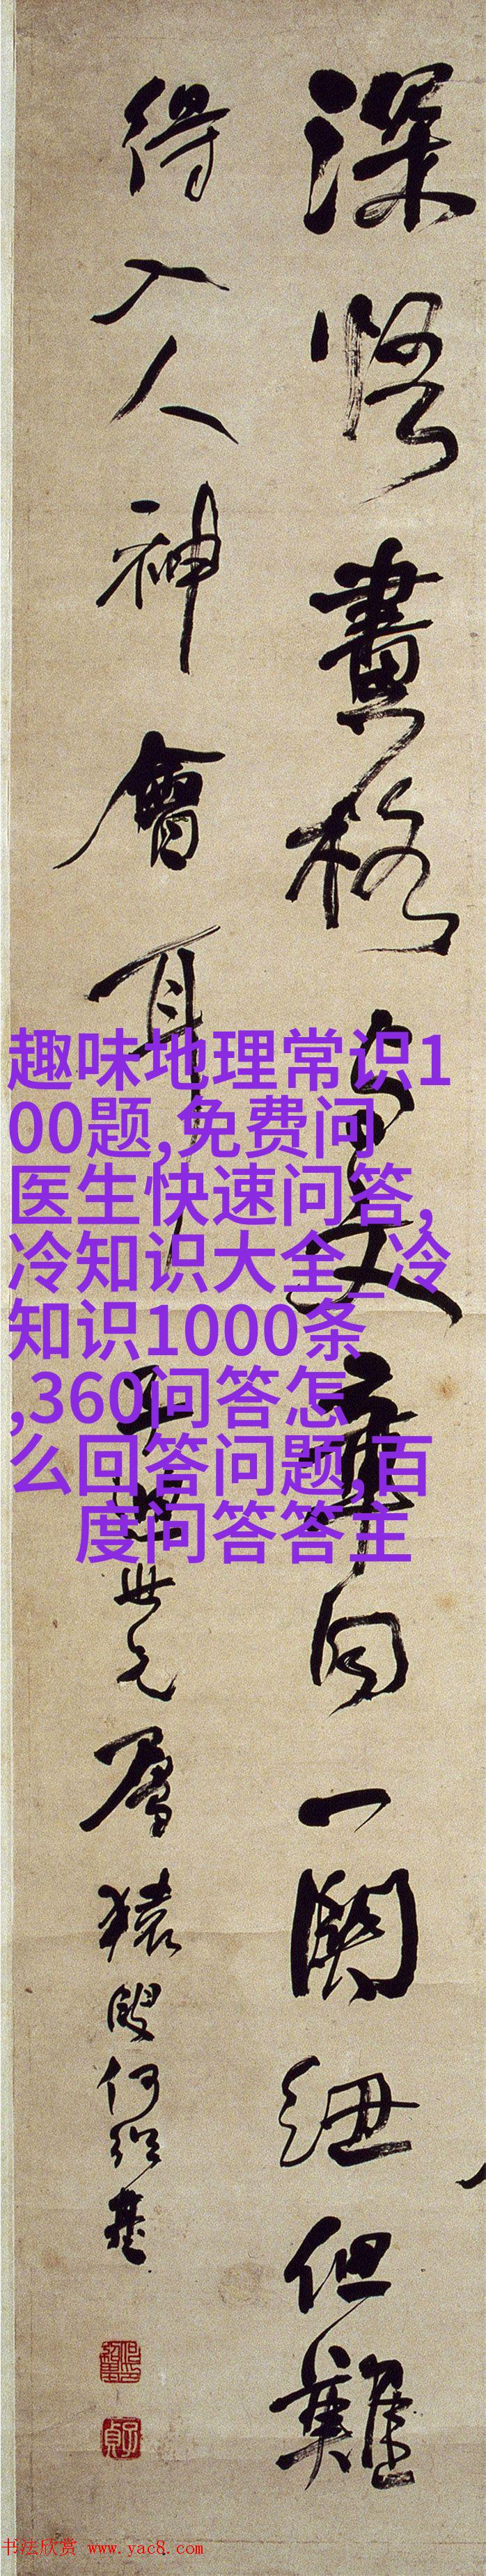 深悟畫格与文章同一關紐但難
得入人神會耳
世兄屬 猨叟何紹基
趣味地理常识1
00题,免费问
医生快速问答,
冷知识大全_冷
知识1000条
,360问答怎
么回答问题,百
度问答答主
书法欣赏 www.yac8.com